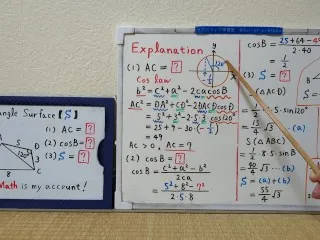 angle Surface [S]
(1) AC = ?
(2) cosB = ?
(3) S = ?
A
5
D
120°
3
C
8
Math is my account!
Explanation
y
120°
x
(1) AC = ?
Cos law
b² = c² + a² - 2ca cosB
AC² = DA² + CD² - 2DA CD cosD
= 5² + 3² - 2·5·3·cos120°
= 25 + 9 - 30·(-½)
= 49
AC > 0, AC = 7
(2) cosB = ?
cosB = c² + a² - b² / 2ca
= 5² + 8² - 7² / 2·5·8
cosB = 25 + 64 - 49 / 2·40
(3) S = ?
S (△ACD)
= ½·5·3·sin120°
= 15/4 √3 ··(a)
S (△ABC)
= ½·8·5·sinB
= 40/4 √3 ··(b)
S = (a) + (b)
= 55/4 √3